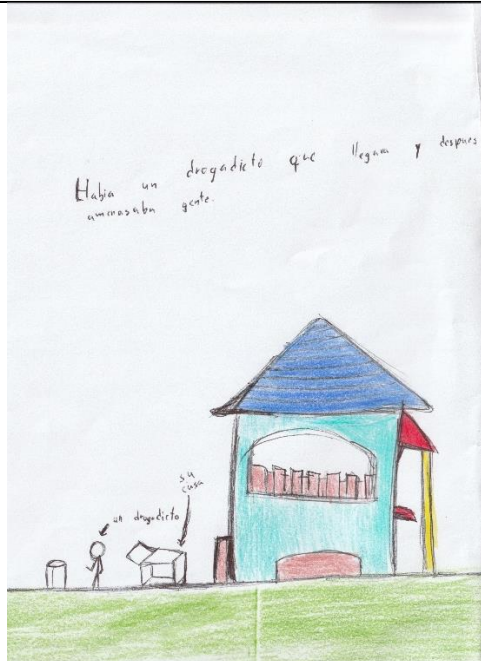 Habia un drogadicto que llegaba y despues
amenasaba gente.
su
casa
un drogadicto